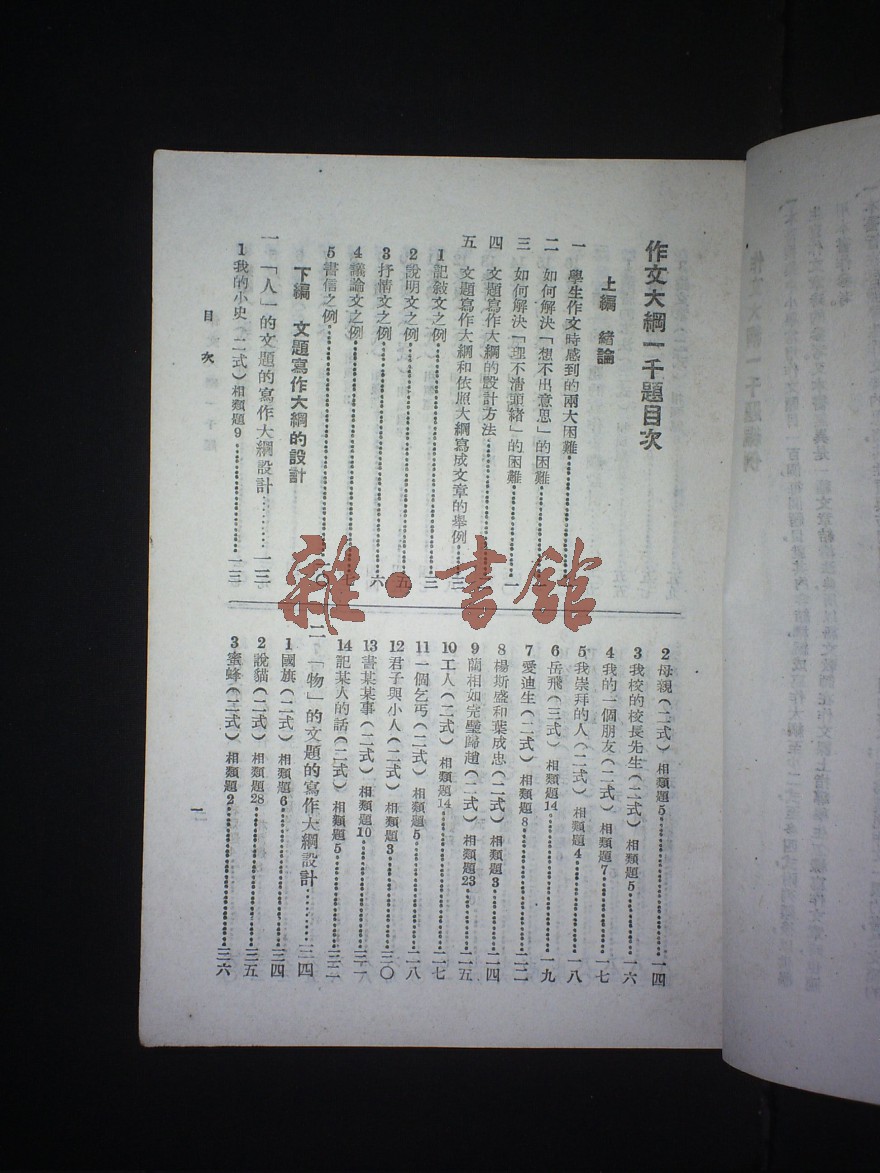 作文大綱一千題目次
上編　緒論
一　學生作文時感到的兩大困難
二　如何解決「想不出意思」的困難
三　如何解決「理不清頭緒」的困難……一
四　文題寫作大綱的設計方法
五　文題寫作大綱和依照大綱寫成文章的舉例……三
1 記敍文之例……三
2 說明文之例……五
3 抒情文之例……六
4 議論文之例
5 書信之例
下編　文題寫作大綱的設計
一　「人」的文題的寫作大綱設計……一三
1 我的小史(二式)相類題9……一三
2 母親(二式)相類題5……一四
3 我校的校長先生(二式)相類題5……一六
4 我的一個朋友(二式)相類題7……一七
5 我崇拜的人(二式)相類題4……一八
6 岳飛(三式)相類題14……一九
7 愛迪生(二式)相類題8……二二
8 楊斯盛和葉成忠(二式)相類題3……二四
9 藺相如完璧歸趙(二式)相類題23……二五
10 工人(二式)相類題14……二七
11 一個乞丐(二式)相類題5……二八
12 君子與小人(二式)相類題3……三〇
13 書某某事(二式)相類題10……三一
14 記某人的話(二式)相類題5……三二
二　「物」的文題的寫作大綱設計……三四
1 國旗(二式)相類題6……三四
2 說貓(二式)相類題28……三五
3 蜜蜂(二式)相類題2……三六
目次
一
雜·書館